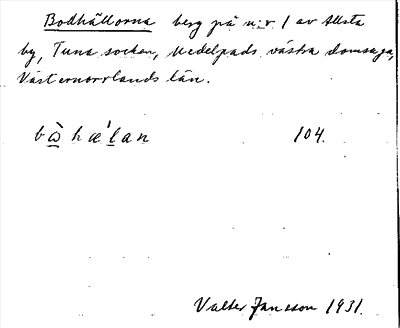 Bodhällorna berg på n:r 1 av Allsta
by, Tuna socken, Medelpads västra domsaga,
Västernorrlands län.
bὼhæ'lan 104.
Valter Jansson 1931.